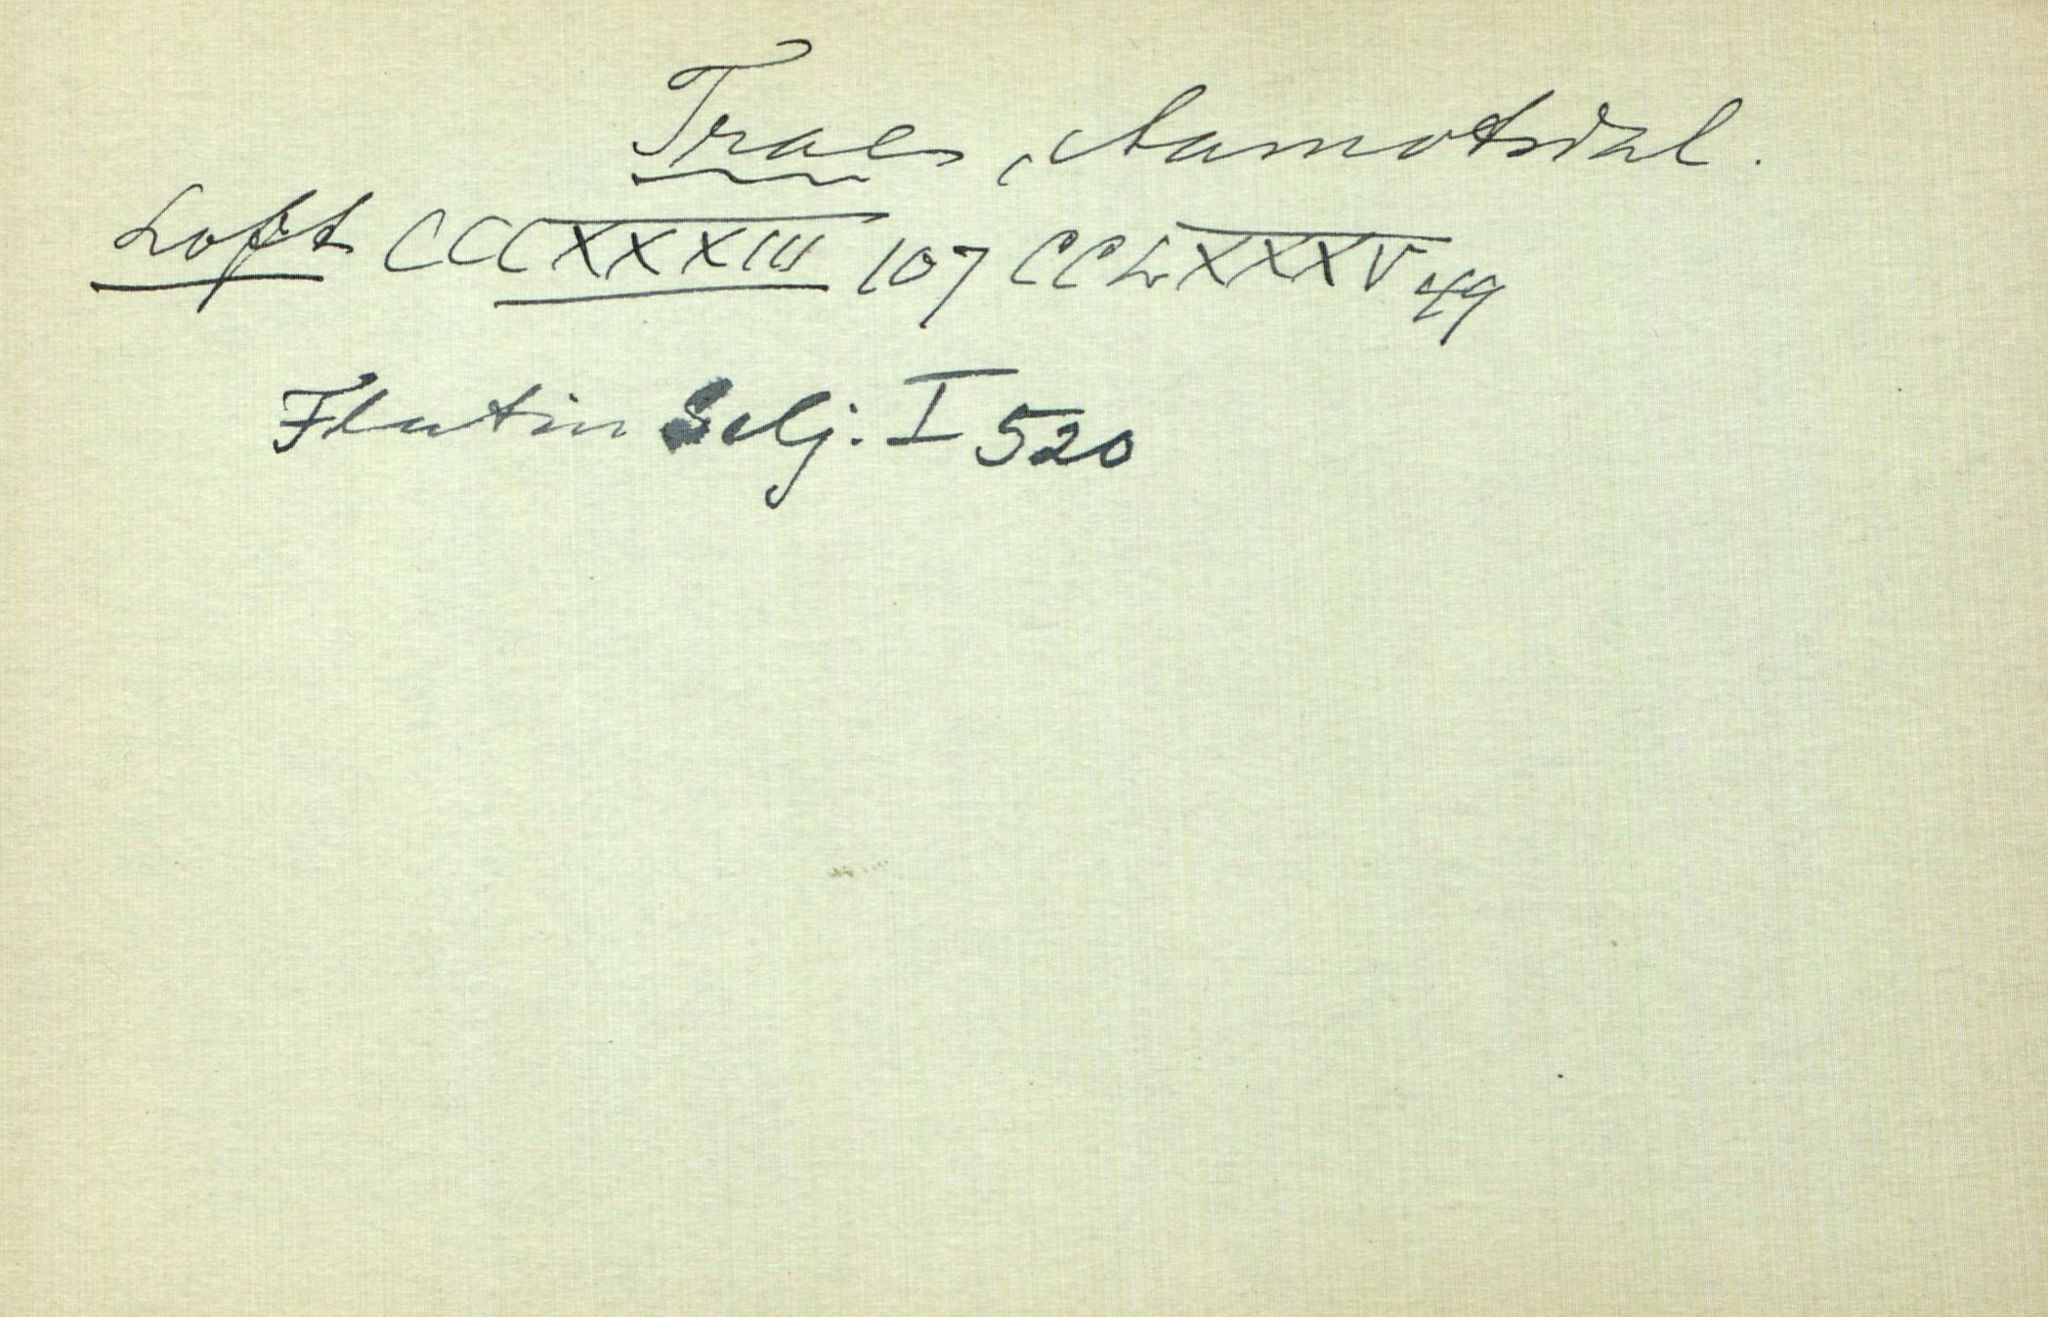 Traen, Aamotsdal.
Loft CCCXXXIII 107 CCLXXXV 49
Flatin Selj. I 520